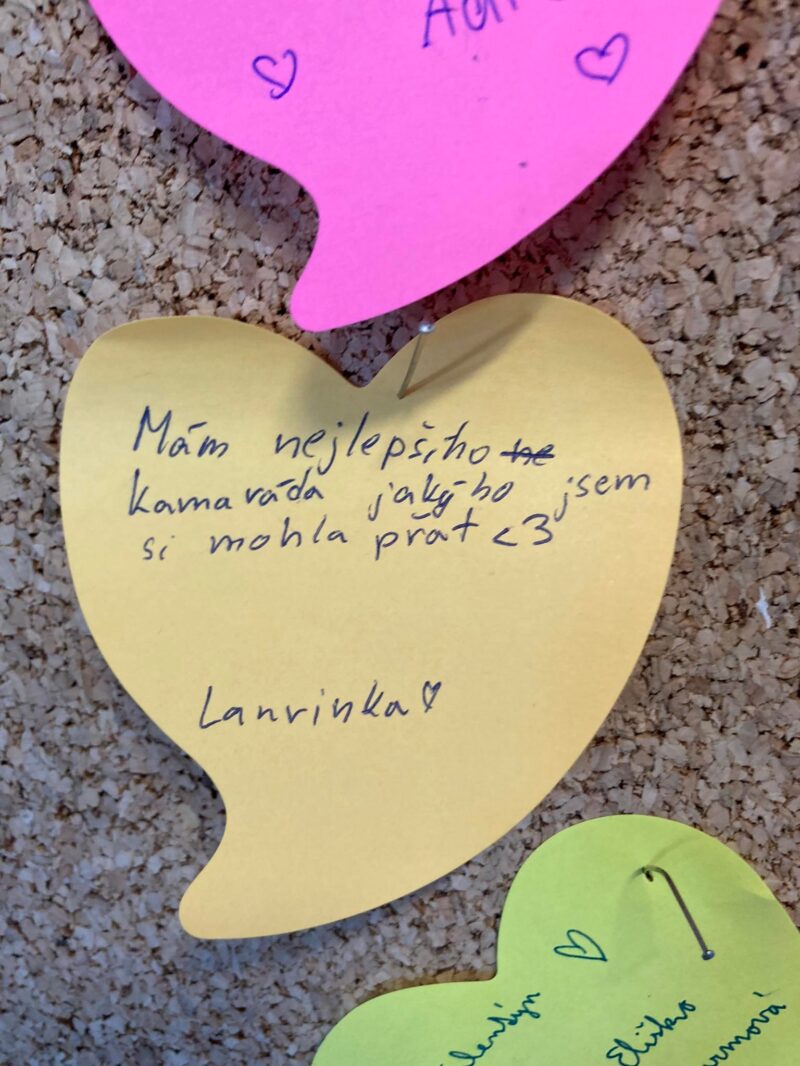 Mám nejlepšího ne
kamaráda jakýho jsem
si mohla přát <3
Lanrinka♡
Eliško